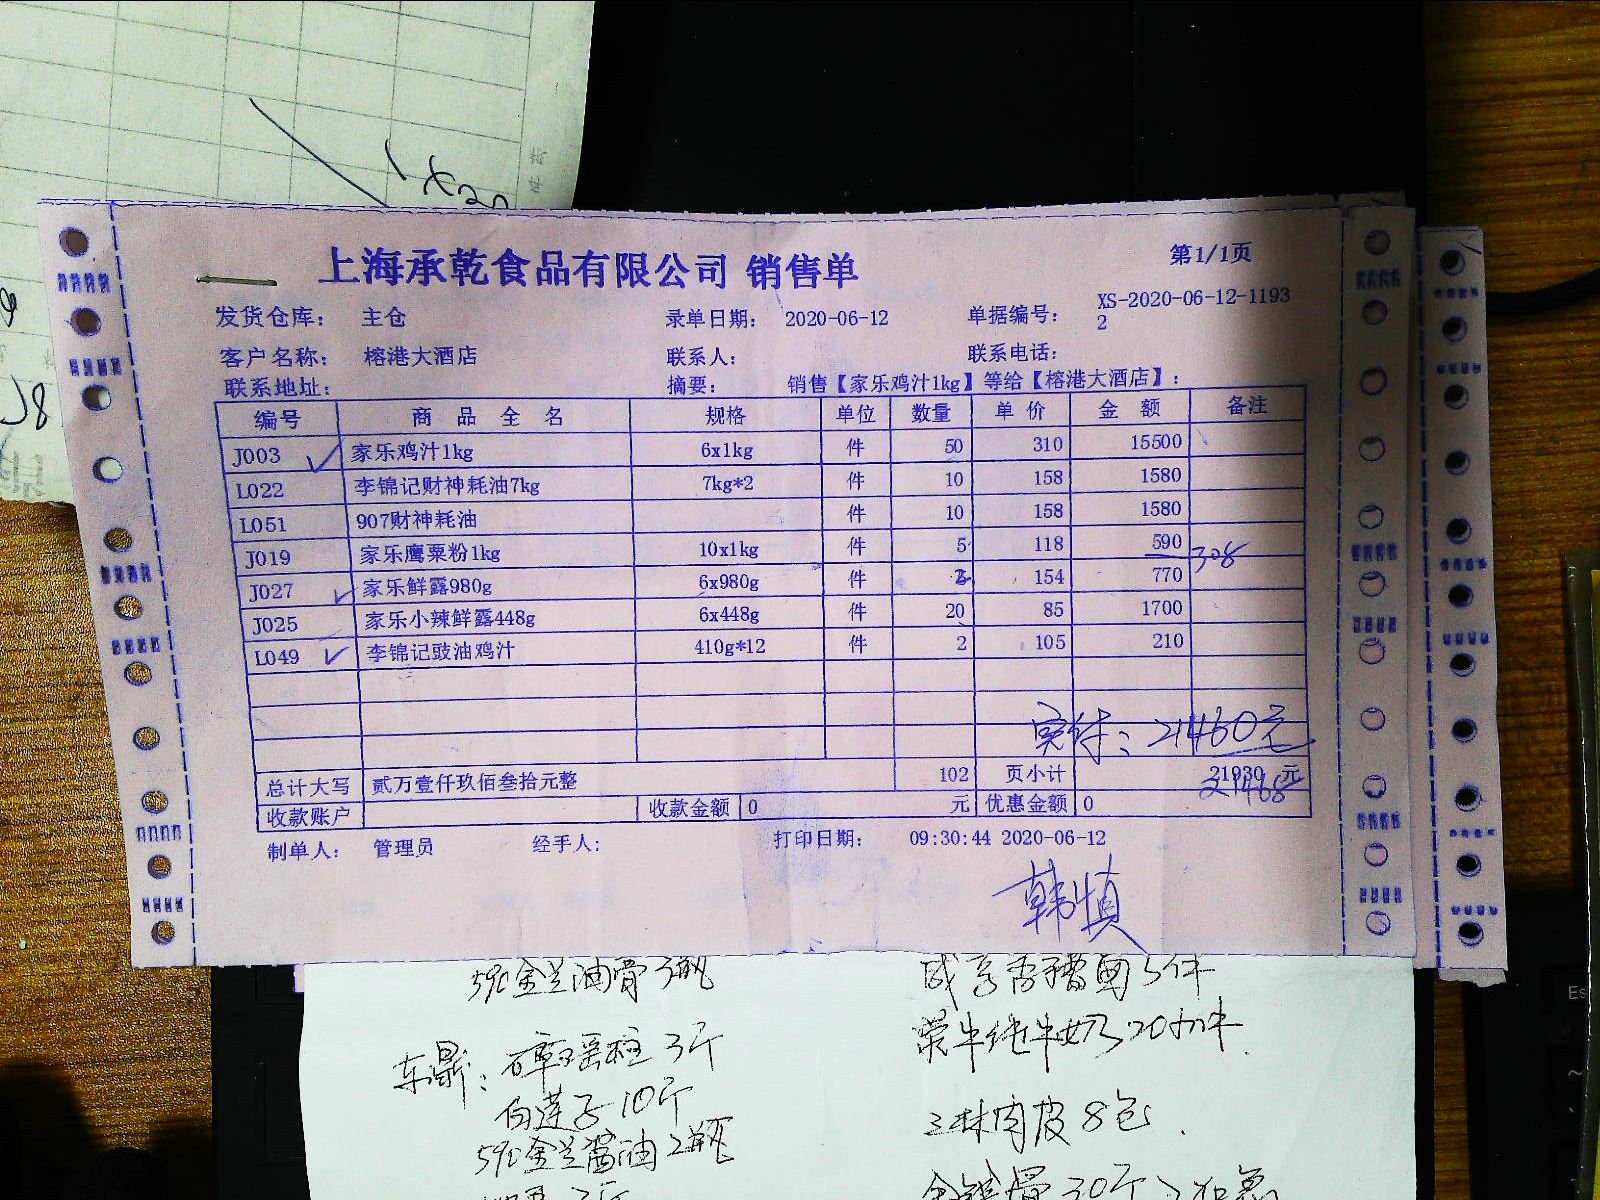 上海承乾食品有限公司 销售单
第1/1页
发货仓库： 主仓 录单日期： 2020-06-12 单据编号： XS-2020-06-12-1193
2
客户名称： 榕港大酒店 联系人： 联系电话：
联系地址： 摘要： 销售【家乐鸡汁1kg】等给【榕港大酒店】：
编号 商品全名 规格 单位 数量 单价 金额 备注
J003 家乐鸡汁1kg 6x1kg 件 50 310 15500
L022 李锦记财神耗油7kg 7kg*2 件 10 158 1580
L051 907财神耗油 件 10 158 1580
J019 家乐鹰粟粉1kg 10x1kg 件 5 118 590
308
J027 家乐鲜露980g 6x980g 件 154 770
J025 家乐小辣鲜露448g 6x448g 件 20 85 1700
L049 李锦记豉油鸡汁 410g*12 件 2 105 210
实付：21460元
总计大写 贰万壹仟玖佰叁拾元整 102 页小计 21930 元
21468
收款账户 收款金额 0 元 优惠金额 0
制单人： 管理员 经手人： 打印日期： 09:30:44 2020-06-12
韩慎
590金兰油膏3瓶
咸亨香糟卤5件
荣牛纯牛奶20
东鼎： 瑶柱3斤
白莲子10斤
三林肉皮8包
590金兰酱油2瓶
30斤